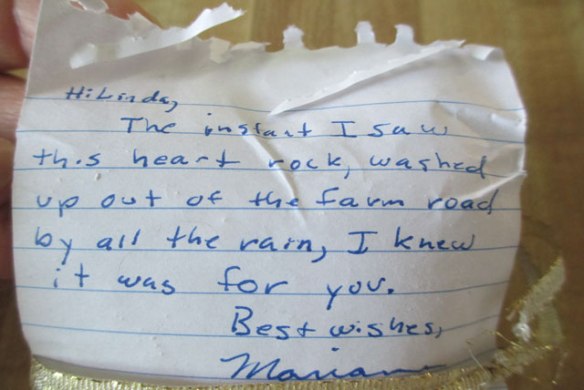 Hi Linda,
The instant I saw
this heart rock, washed
up out of the farm road
by all the rain, I knew
it was for you.
Best wishes,